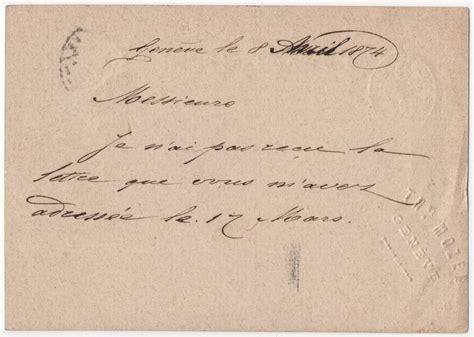 Genève le 8 Avril 1874
Messieurs
Je n'ai pas reçu la
lettre que vous m'avez
adressée le 17 Mars.
GENÈVE